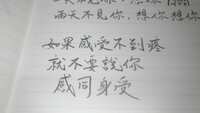 雨天不見你，想你想你
如果感受不到疼
就不要說你
感同身受